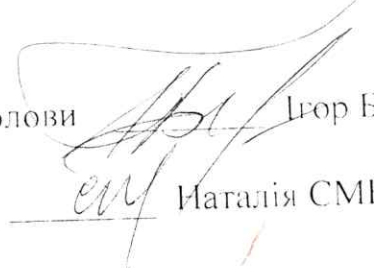 олови Ігор Б
Наталія СМІ